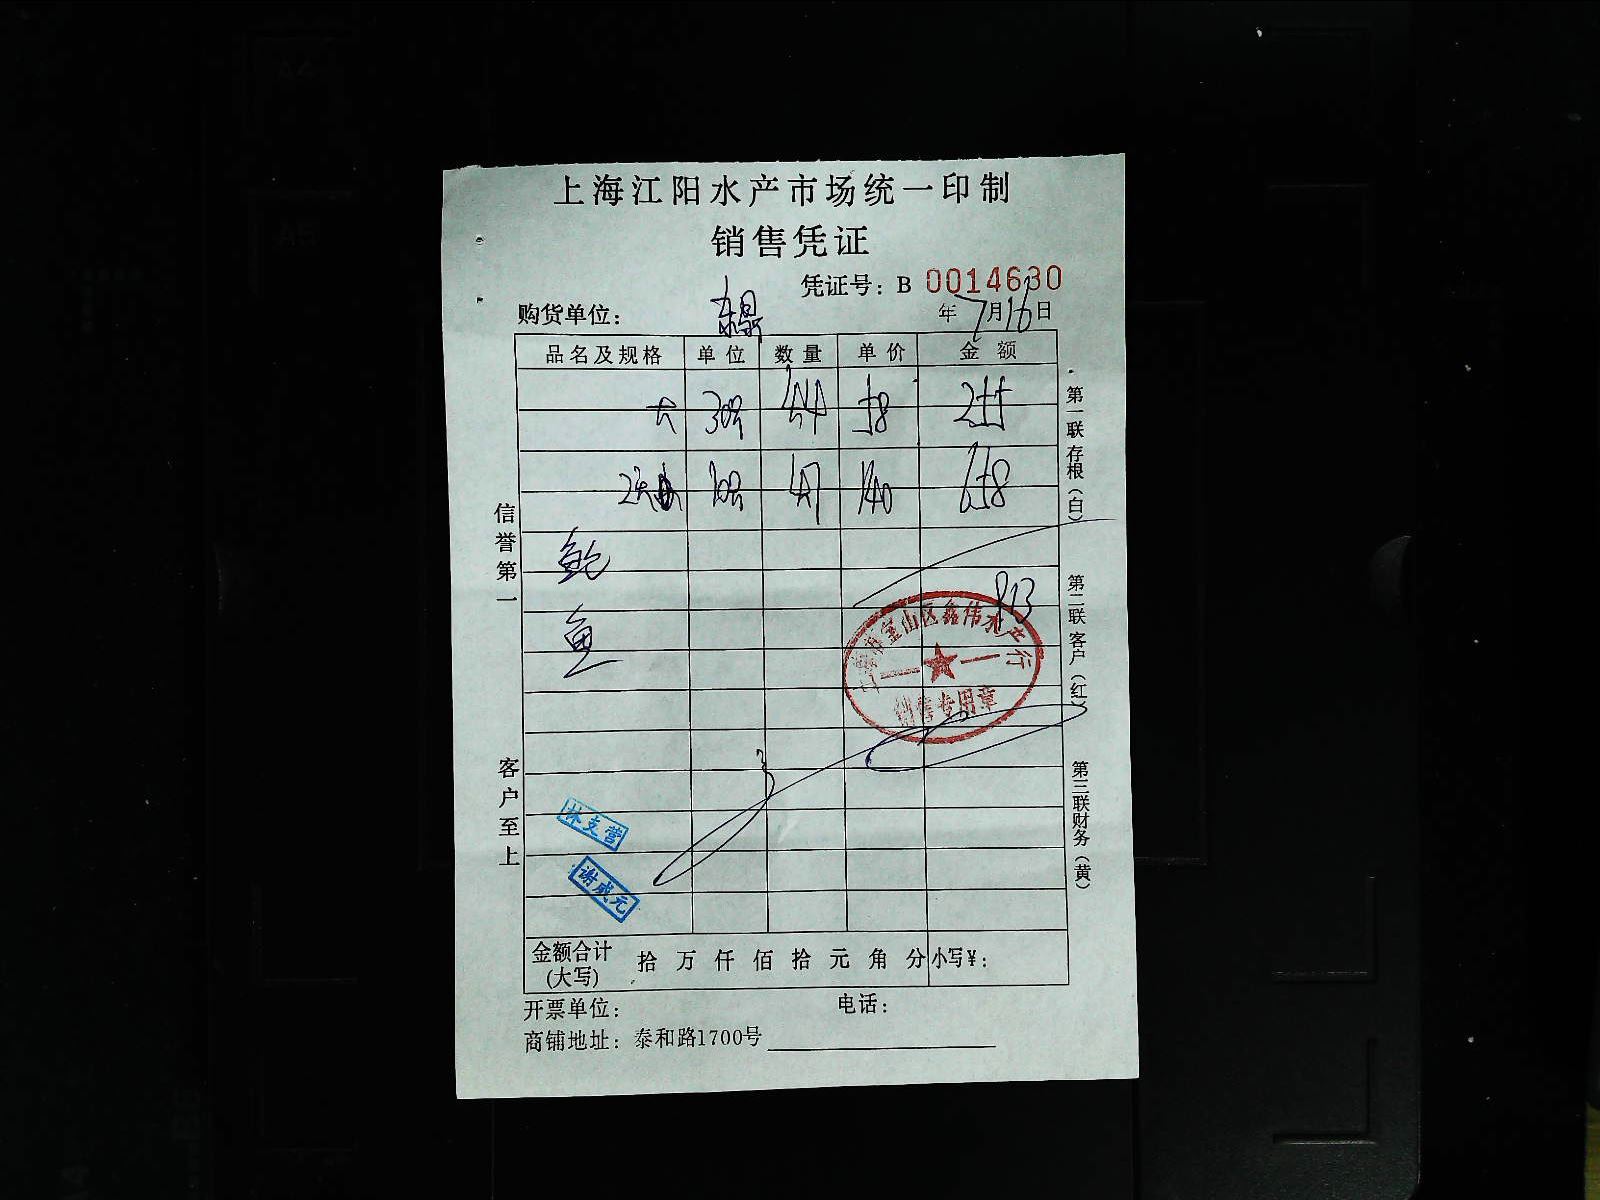 上海江阳水产市场统一印制
销售凭证
凭证号：B 0014630
购货单位： 年7月16日
品名及规格 单位 数量 单价 金额
大 30只 4.4 58 255
10只 4.7 140 658
鲍
鱼
913
上海市宝山区鑫伟水产行
销售专用章
林支营
谢成元
金额合计(大写) 拾 万 仟 佰 拾 元 角 分 小写¥：
开票单位： 电话：
商铺地址：泰和路1700号
信誉第一
客户至上
第一联存根（白）
第二联客户（红）
第三联财务（黄）